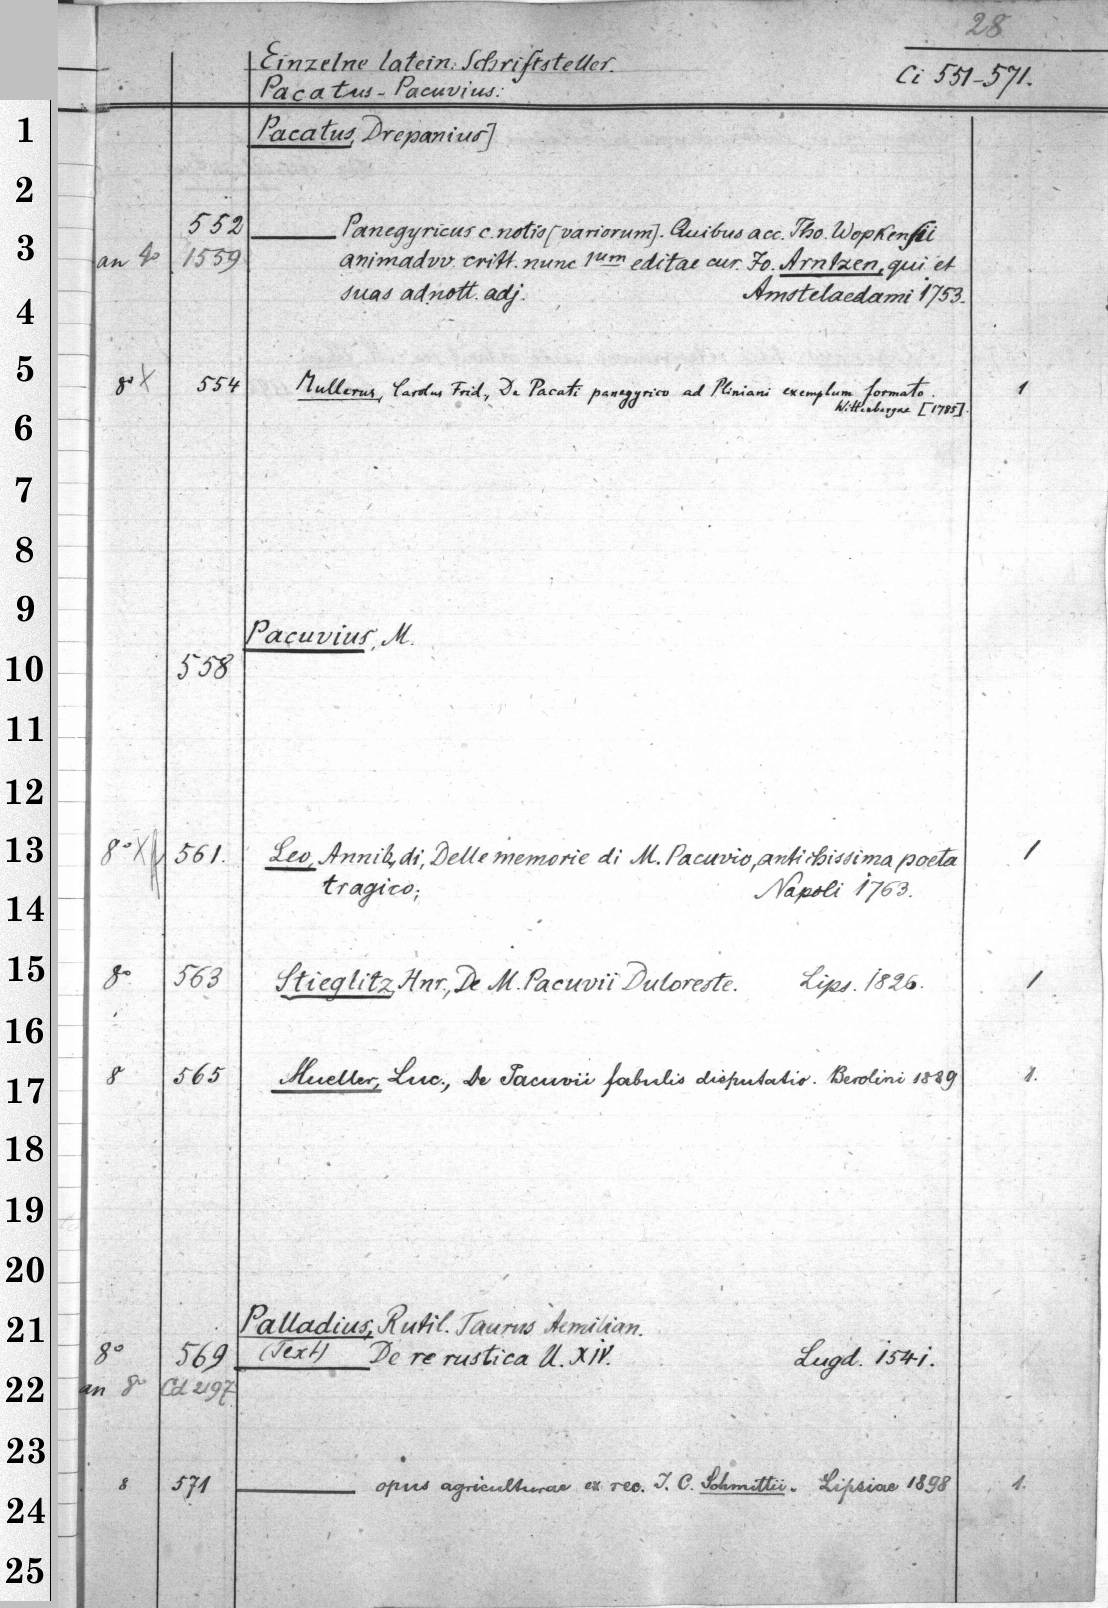 28
Einzelne latein. Schriftsteller.
Ci 551-571.
Pacatus - Pacuvius.
1
Pacatus, Drepanius]
2
552 Panegyricus c. notis [variorum]. Quibus acc. Tho. Wopkensii
3
an 4° 1559 animadvv. critt. nunc 1um editae cur. Jo. Arntzen, qui et
4
suas adnott. adj. Amstelaedami 1753.
5
8° X 554 Mullerus, Carolus Frid., De Pacati panegyrico ad Pliniani exemplum formato. 1
Wittenbergae [1785].
6
7
8
9
Pacuvius, M.
10
558
11
12
13
8° X 561. Leo, Annib. di, Delle memorie di M. Pacuvio, antichissima poeta 1
tragico; Napoli 1763.
14
15
8° 563 Stieglitz, Hnr., De M. Pacuvii Duloreste. Lips. 1826. 1
16
17
8 565 Mueller, Luc., De Pacuvii fabulis disputatio. Berolini 1889 1.
18
19
20
21
Palladius, Rutil. Taurus Aemilian.
8° 569 (Text) De re rustica ll. XIV. Lugd. 1541.
22
an 8° Cd 2197
23
8 571 opus agriculturae ex rec. J. C. Schmittii. Lipsiae 1898 1.
24
25